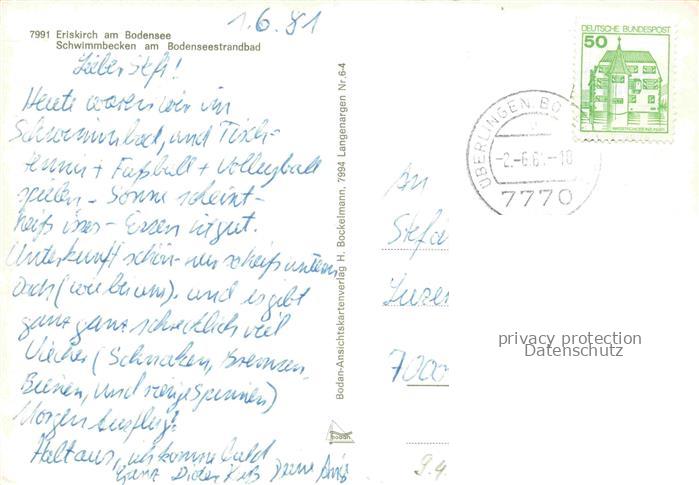 1.6.81
7991 Eriskirch am Bodensee
Schwimmbecken am Bodenseestrandbad
Lieber Stefi!
Heute waren wir im
Schwimmbad, und Tisch-
tennis + Fußball + Volleyball
spielen - Sonne scheint-
heiß isses - Essen ist gut.
Unterkunft schön - nur scheiß unterm
Dach (wie bei uns). und es gibt
ganz ganz schrecklich viel
Viecher (Schnaken, Bremsen
Bienen, und Spinnen)
Morgen Ausflug!
Halt aus, ich komme bald
Ganz Dicken Kuß Deine
Bodan-Ansichtskartenverlag H. Bockelmann, 7994 Langenargen Nr. 6-4
bodan
DEUTSCHE BUNDESPOST
50
ÜBERLINGEN, BO
-2.-6.81-18
7770
An
Stefa
Luzer
7000
privacy protection
Datenschutz
9.4